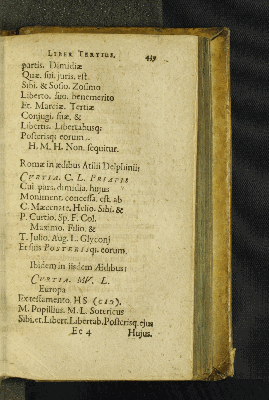 LIBER TERTIUS. 439
partis. Dimidiæ
Quæ. sui. juris. est.
Sibi. & Sosio. Zosimo
Liberto. suo. benemerito
Et. Marciæ. Tertiæ
Conjugi. suæ. &
Libertis. Libertabusq;
Posterisq; eorum.
H. M. H. Non. sequitur.
Romæ in ædibus Atilii Delphinii:
CURTIA. C. L. PRIAPIS
Cui. pars. dimidia. hujus
Monument. concessa. est. ab
C. Mæcenate. Helio. Sibi. &
P. Curtio. Sp. F. Col.
Maximo. Filio. &
T. Julio. Aug. L. Glyconi
Et suis POSTERISq; eorum.
Ibidem in iisdem Ædibus:
CURTIA. MV. L.
Europa
Ex testamento. HS (cIɔ).
M. Popillius. M. L. Sotericus
Sibi. et. Libert. Libertab. Posterisq. ejus
Ee 4 Hujus.